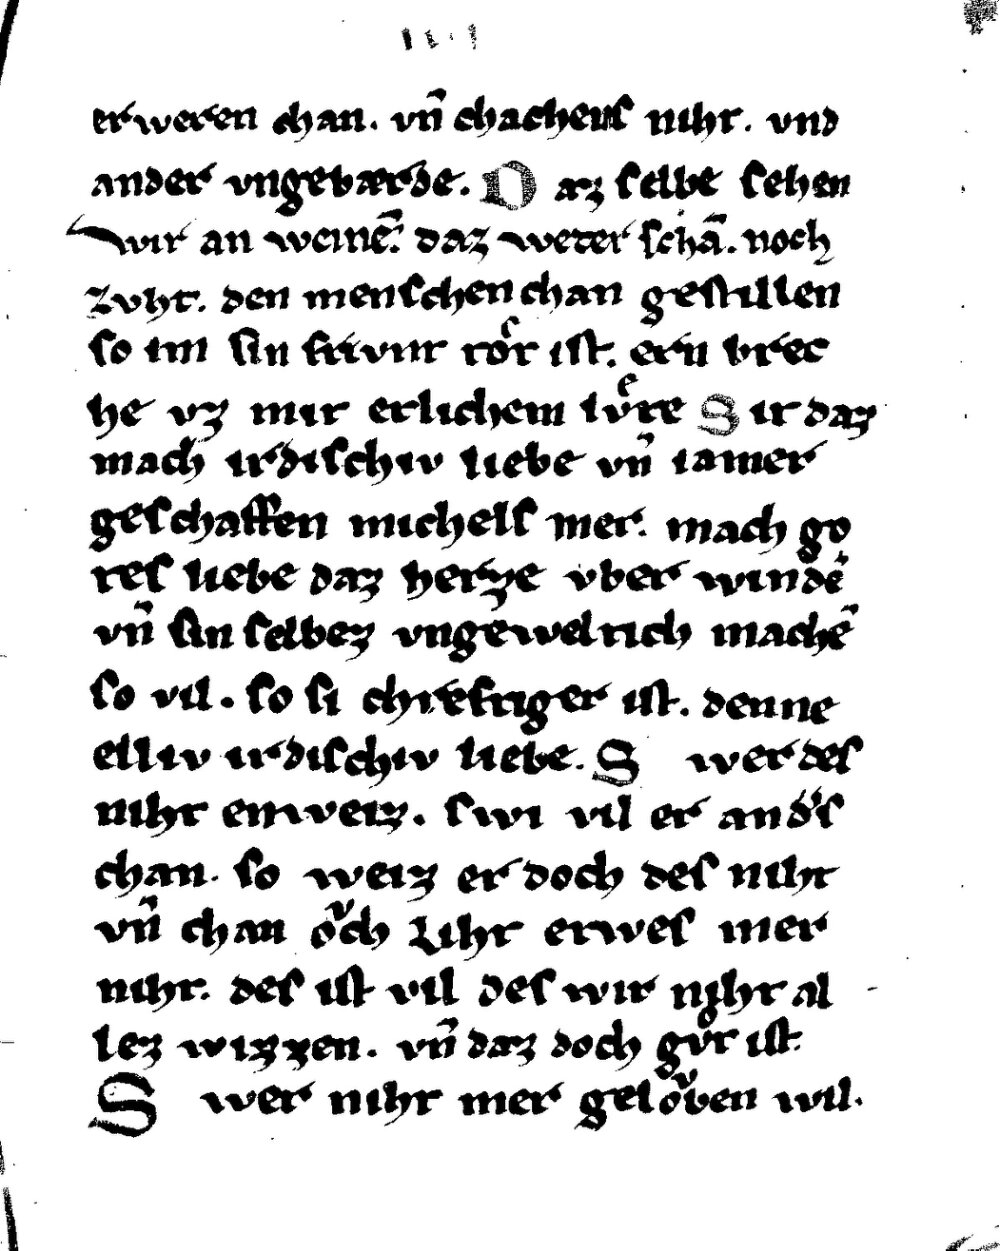 erweren chan. vn̄ chachens niht. vnd
ander vngebærde. Daz selbe sehen
wir an weinē. daz weter schā. noch
zvht. den menschen chan gestillen
so im sin frivnt toͤt ist. ern brec
he vz mit etlichem tvͤre Sit daz
mach irdischiv liebe vn̄ iamer
geschaffen michels mer. mach go
tes liebe daz herze vber windē
vn̄ sin selbez vngeweltich machē
so vil. so si chreftiger ist. denne
elliv irdischiv liebe. Swer des
niht enweiz. swi vil er anders
chan. so weiz er doch des niht
vn̄ chan oͮch liht etwes mer
niht. des ist vil des wir niht al
lez wizzen. vn̄ daz doch gvͦt ist
Swer niht mer geloͮben wil.